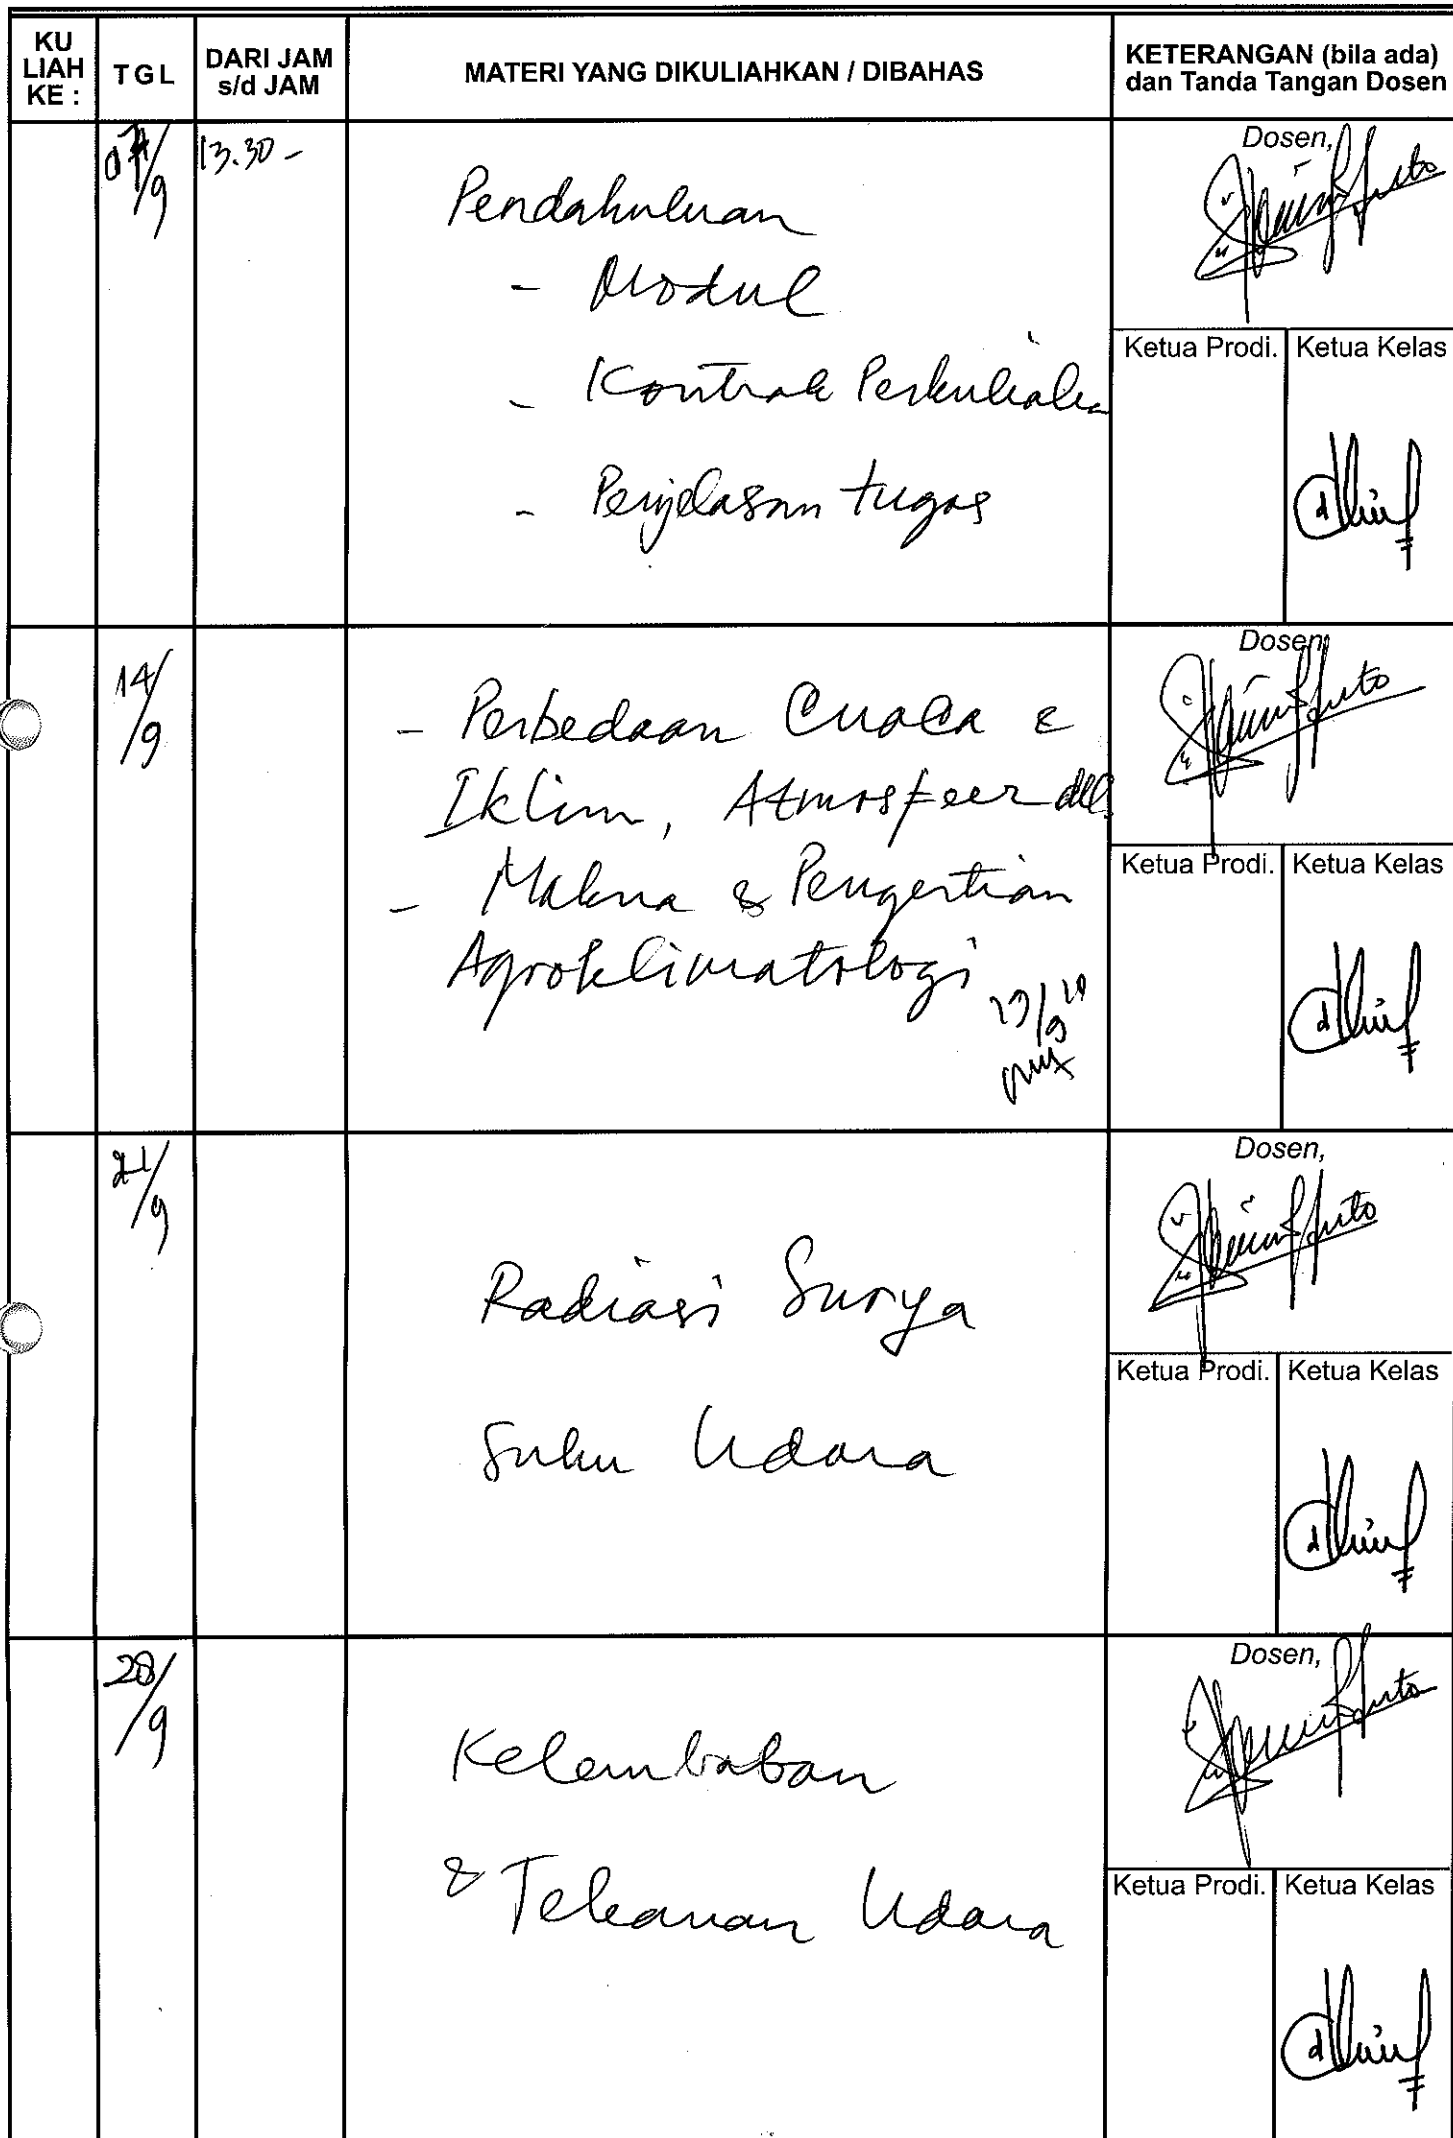 KU LIAH KE :
TGL
DARI JAM s/d JAM
MATERI YANG DIKULIAHKAN / DIBAHAS
KETERANGAN (bila ada) dan Tanda Tangan Dosen
07/9
13.30 -
Pendahuluan
- Modul
- Kontrak Perkuliahan
- Penjelasan tugas
Dosen,
Ketua Prodi.
Ketua Kelas
14/9
- Perbedaan Cuaca &
Iklim, Atmosfeer dll
- Makna & Pengertian
Agroklimatologi
Dosen,
Ketua Prodi.
Ketua Kelas
21/9
Radiasi Surya
Suhu Udara
Dosen,
Ketua Prodi.
Ketua Kelas
28/9
Kelembaban
& Tekanan Udara
Dosen,
Ketua Prodi.
Ketua Kelas